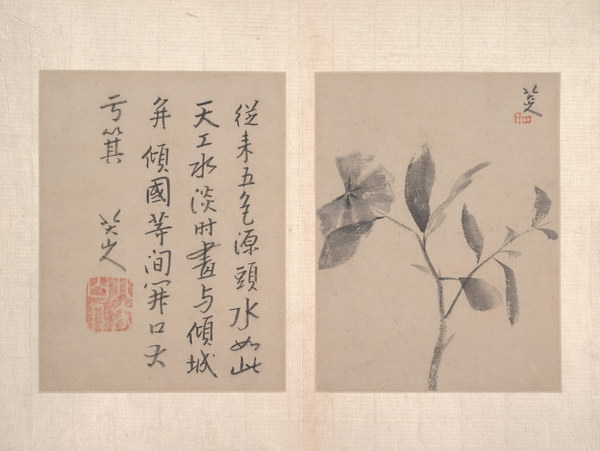 從來五色源頭水如此
天工水淡时畫与傾城
并傾國等间開口大
亏箕
八大山人
八大山人